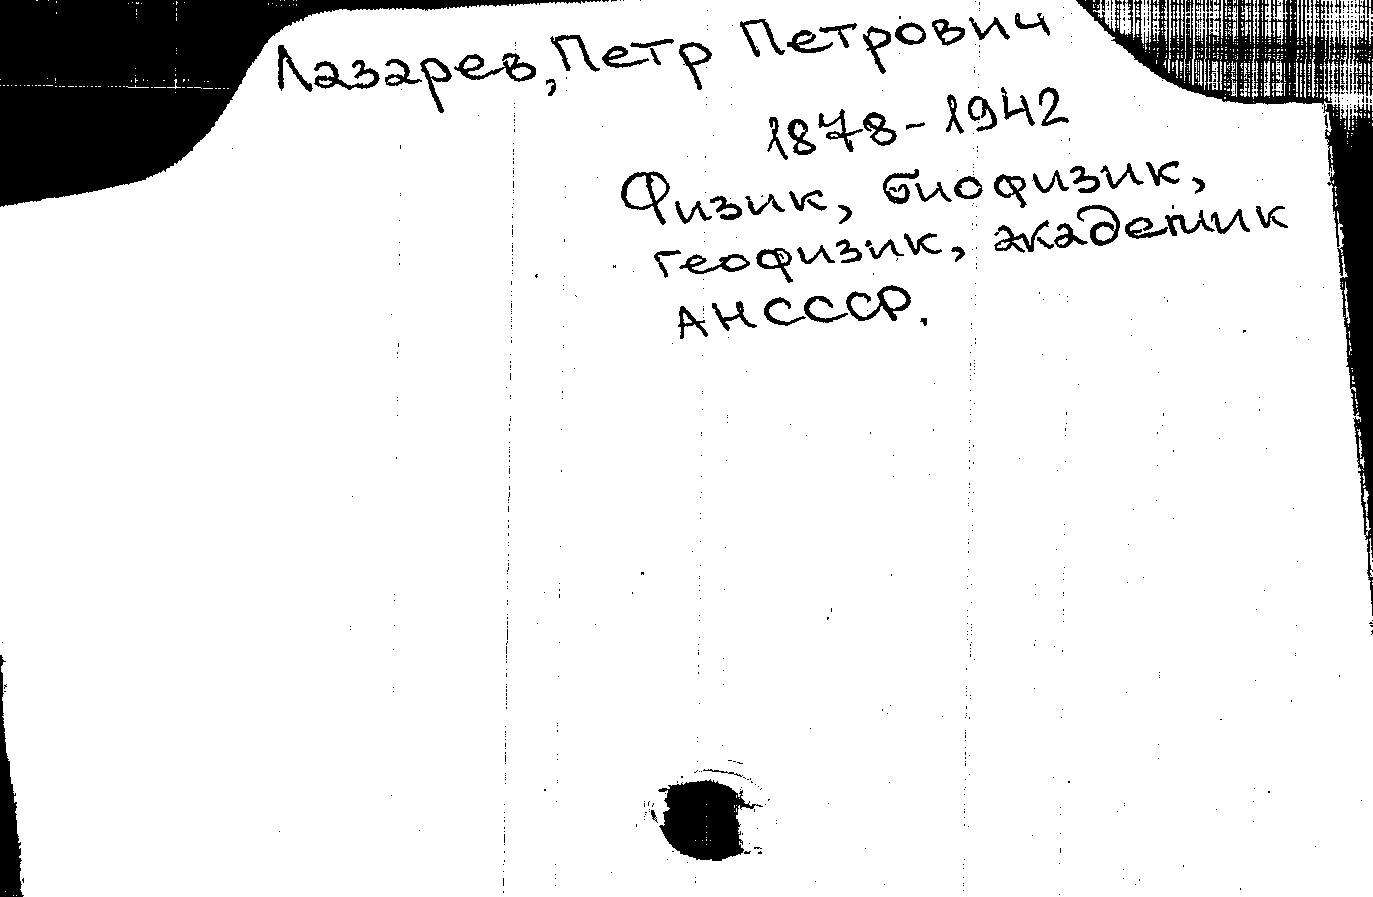 Лазарев, Петр Петрович
1878-1942
Физик, биофизик,
геофизик, академик
АНСССР.